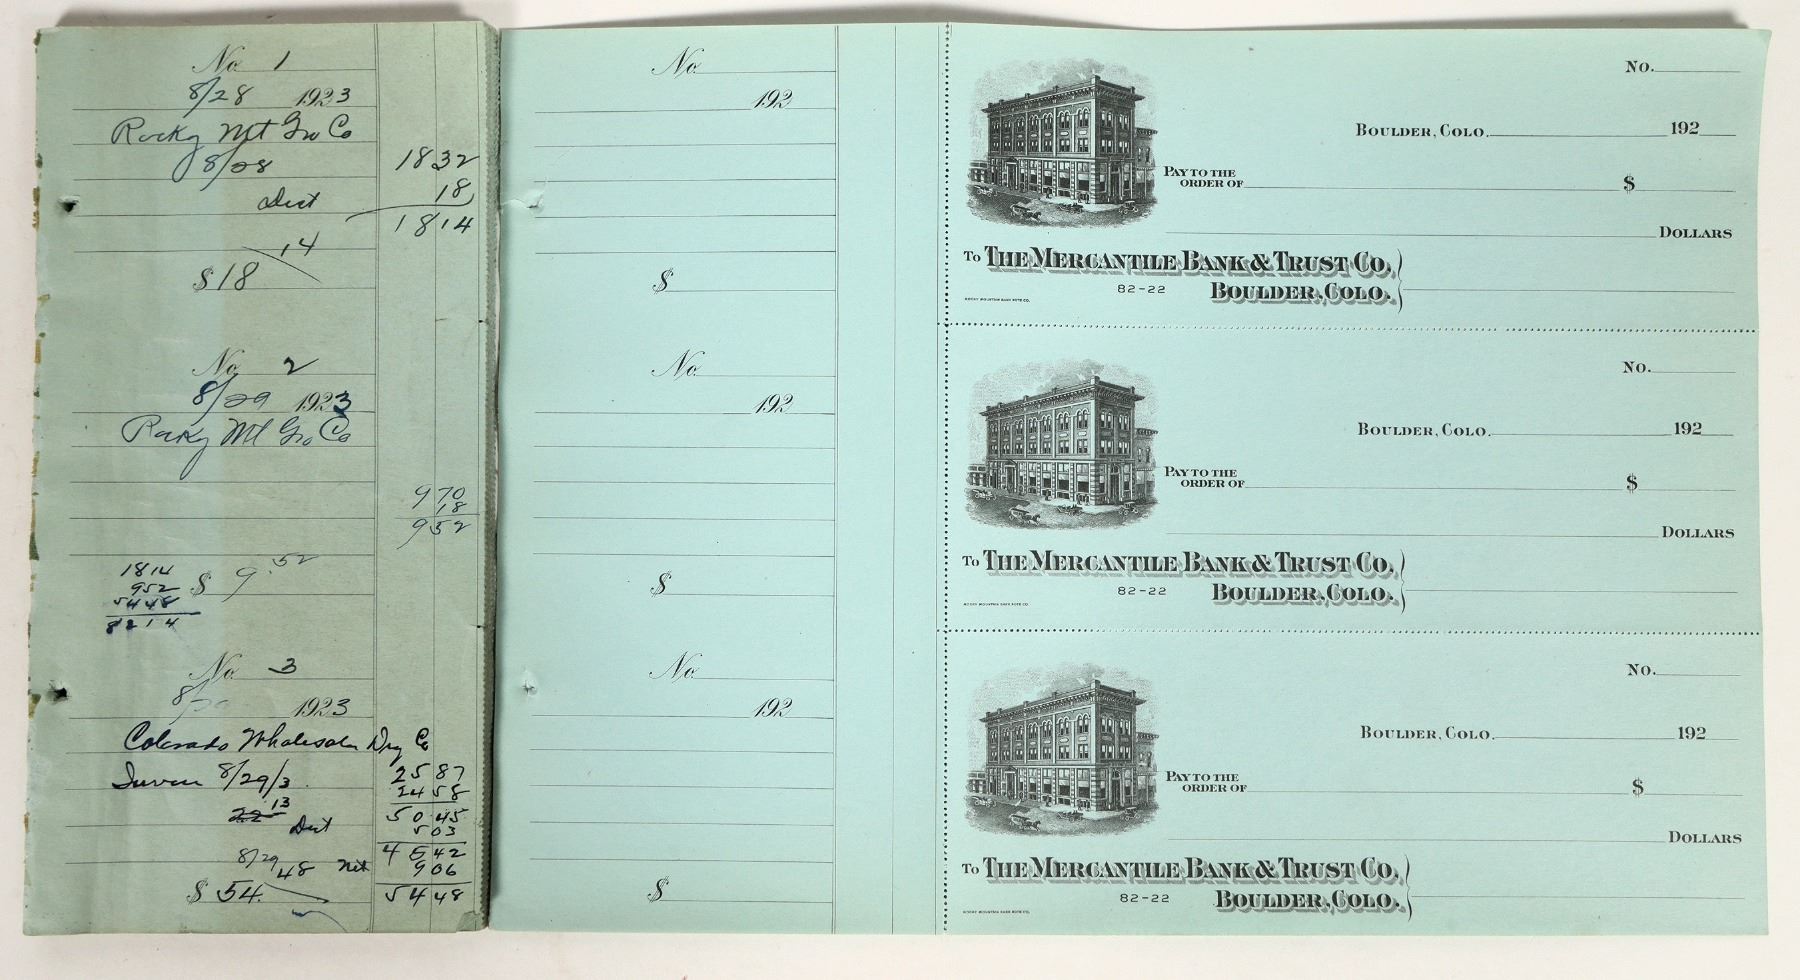 No. 1
8/28 1923
Rocky Mt Gro Co
8/28 1832
Disct 18
1814
14
$18
No. 2
8/29 1923
Rocky Mt Gro Co
970
18
952
$ 9.52
1814
952
5448
8214
No. 3
8/ 1923
Colorado Wholesale Drg Co
8/29/3 2587
13 2458
5045
Disct 503
8/29 Net 4542
48 906
$ 54. 5448
No.
192
$
No.
192
$
No.
192
$
No.
BOULDER, COLO. 192
PAY TO THE
ORDER OF $
DOLLARS
TO THE MERCANTILE BANK & TRUST CO.
82-22 BOULDER, COLO.
ROCKY MOUNTAIN BANK NOTE CO.
No.
BOULDER, COLO. 192
PAY TO THE
ORDER OF $
DOLLARS
TO THE MERCANTILE BANK & TRUST CO.
82-22 BOULDER, COLO.
ROCKY MOUNTAIN BANK NOTE CO.
No.
BOULDER, COLO. 192
PAY TO THE
ORDER OF $
DOLLARS
TO THE MERCANTILE BANK & TRUST CO.
82-22 BOULDER, COLO.
ROCKY MOUNTAIN BANK NOTE CO.